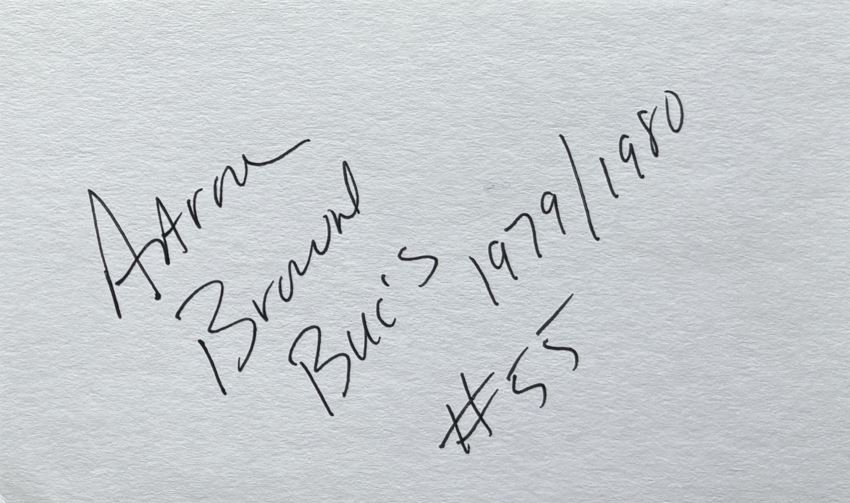 AAron
Brown
Buc's 1979/1980
#55